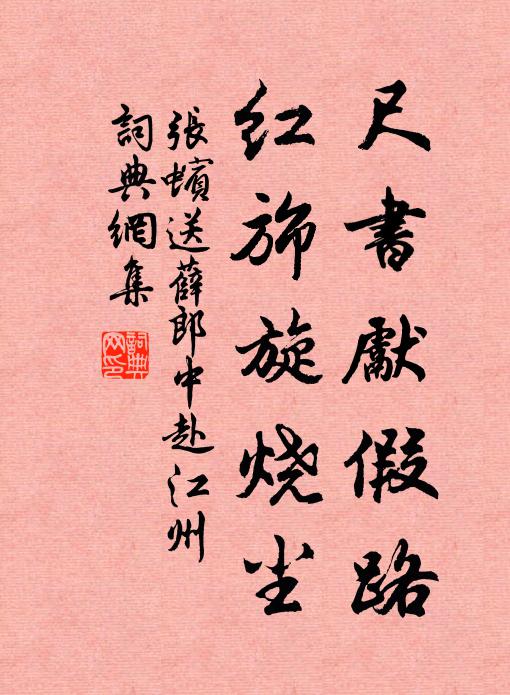 尺書獻假路
紅旆旋烧尘
張蠙送薛郎中赴江州
詞典網集
詞典网印